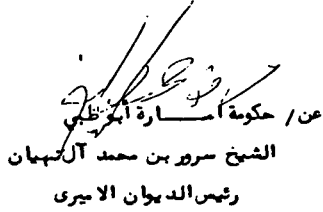 عن/ حكومة أمــــارة أبو ظبي
الشيخ سرور بن محمد آل نهيان
رئيس الديوان الاميرى